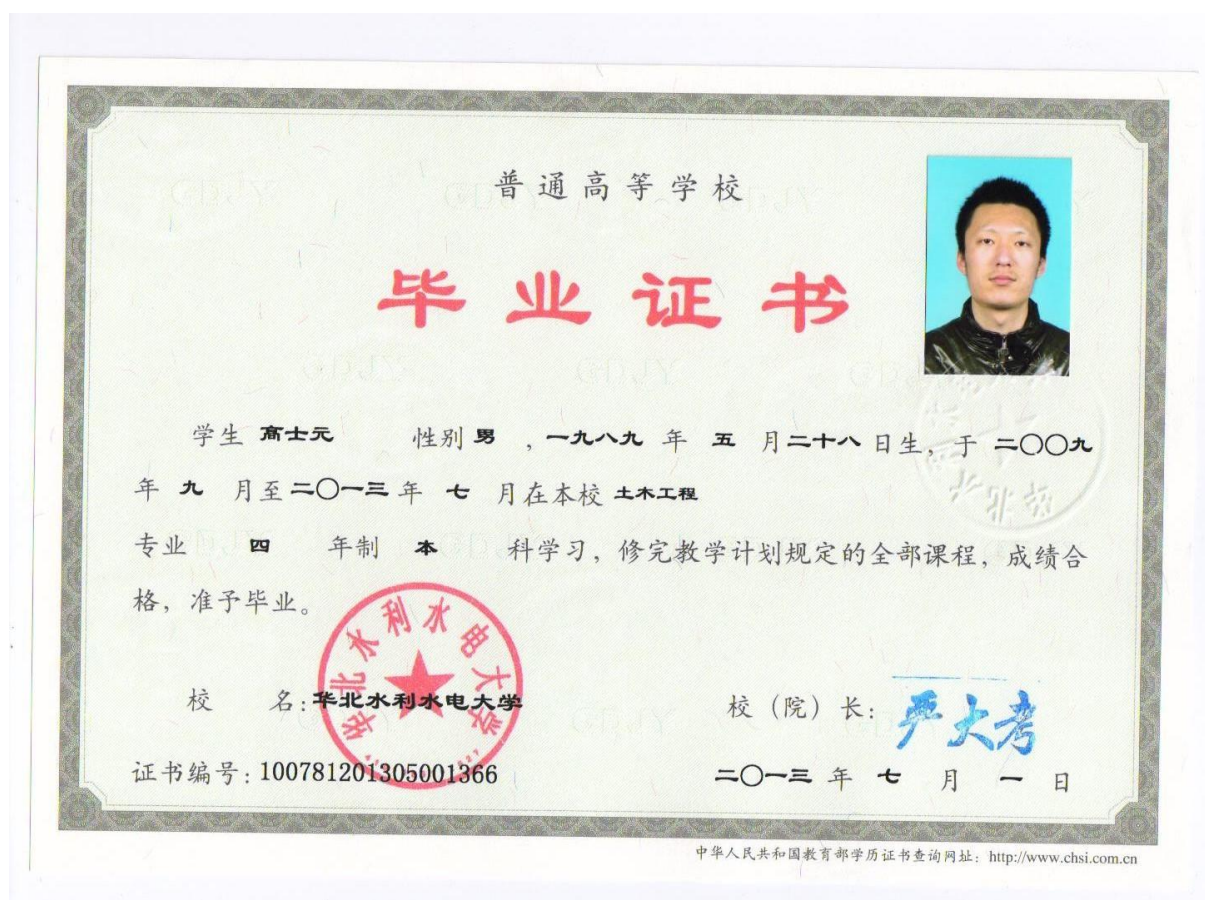 普通高等学校
毕业证书
学生 高士元 性别 男 ，一九八九 年 五 月 二十八 日生，于 二〇〇九
年 九 月至 二〇一三 年 七 月在本校 土木工程
专业 四 年制 本 科学习，修完教学计划规定的全部课程，成绩合
格，准予毕业。
华北水利水电大学
校 名：华北水利水电大学
校（院）长：严大考
证书编号：100781201305001366
二〇一三 年 七 月 一 日
中华人民共和国教育部学历证书查询网址：http://www.chsi.com.cn